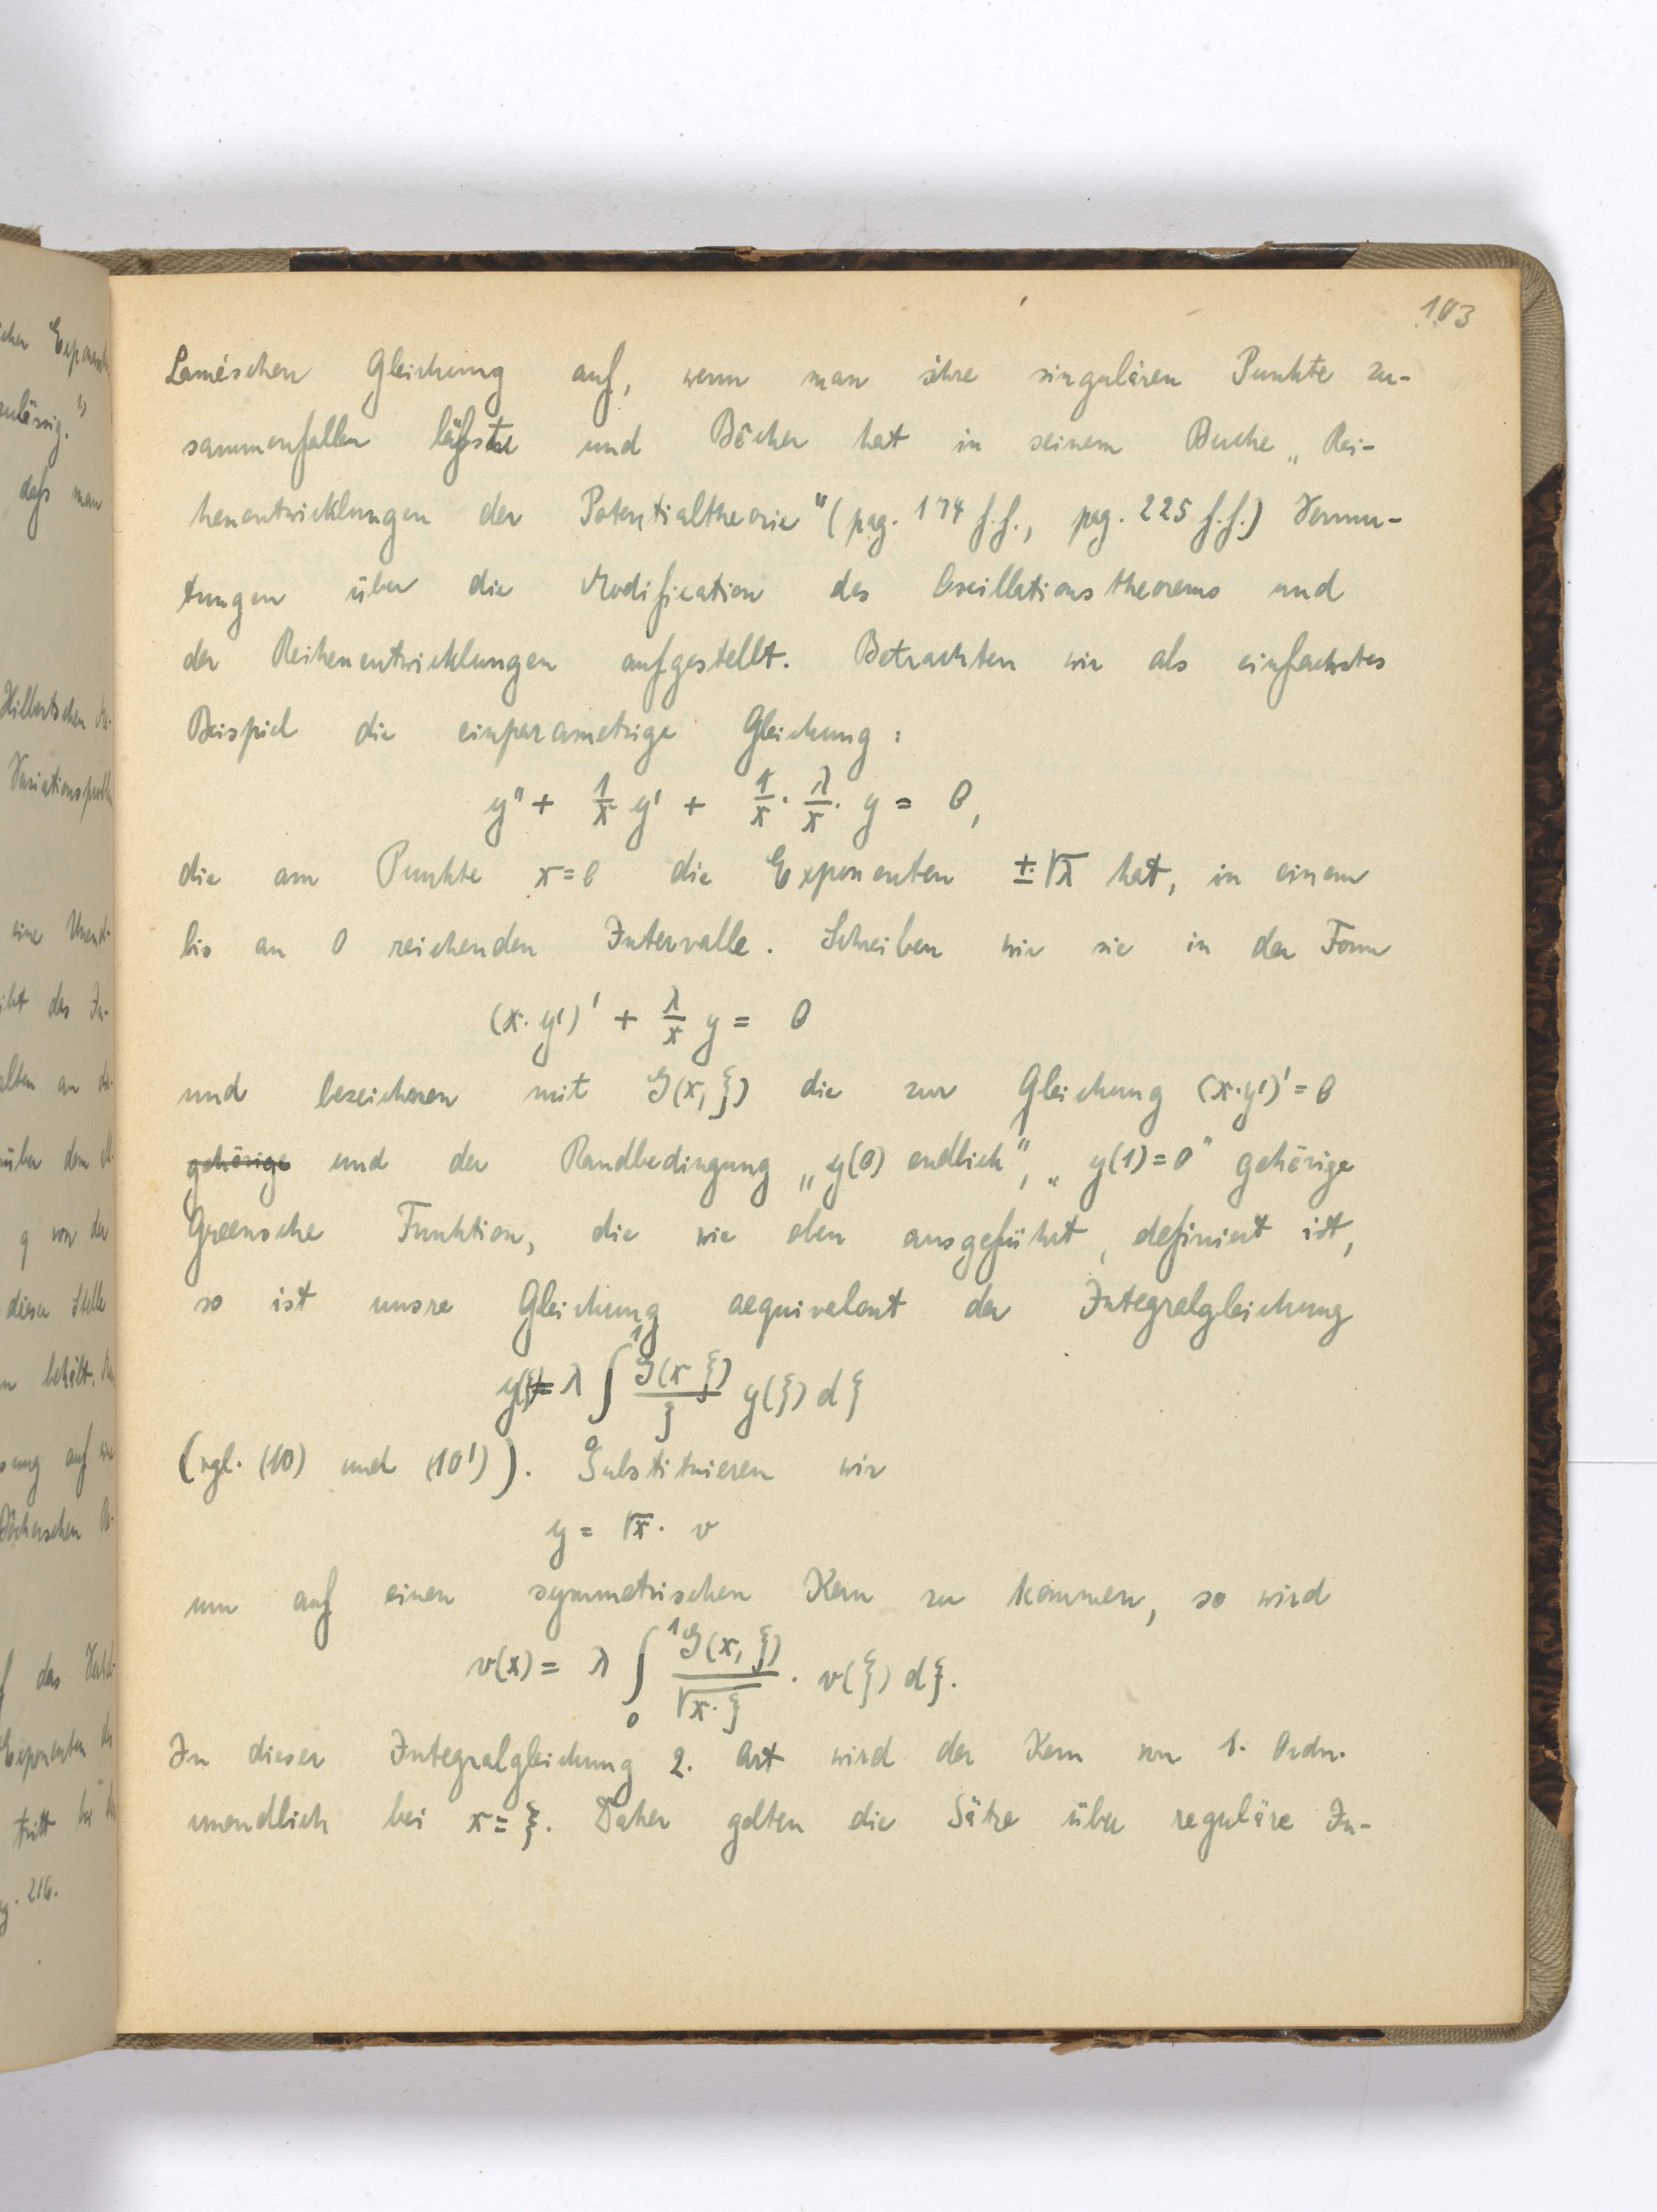 103
Laméschen Gleichung auf, wenn man ihre singulären Punkte zu-
sammenfallen läfst und Bôcher hat in seinem Buche „Rei-
henentwicklungen der Potentialtheorie" (pag. 174 f.f., pag. 225 f.f.) Vermu-
tungen über die Modification des Oscillationstheorems und
der Reihenentwicklungen aufgestellt. Betrachten wir als einfachstes
Beispiel die einparametrige Gleichung:
y'' + 1/x y' + 1/x · λ/x · y = 0,
die am Punkte x=0 die Exponenten ±√λ hat, in einem
bis an 0 reichenden Intervalle. Schreiben wir sie in der Form
(x·y')' + λ/x y = 0
und bezeichnen mit G(x,ξ) die zur Gleichung (x·y')'=0
gehörige und der Randbedingung „y(0) endlich", „y(1)=0" gehörige
Greensche Funktion, die wie oben ausgeführt, definiert ist,
so ist unsre Gleichung aequivalent der Integralgleichung
y = λ ∫₀¹ G(x ξ)/ξ y(ξ) dξ
(vgl. (10) und (10')). Substituieren wir
y = √x · v
um auf einen symmetrischen Kern zu kommen, so wird
v(x) = λ ∫₀¹ G(x,ξ)/√x·ξ · v(ξ) dξ.
In dieser Integralgleichung 2. Art wird der Kern von 1. Ordn.
unendlich bei x=ξ. Daher gelten die Sätze über reguläre In-
zulässig. 1)
dafs man
Hilbertschen
eine
dieser Stelle
Exponenten
216.